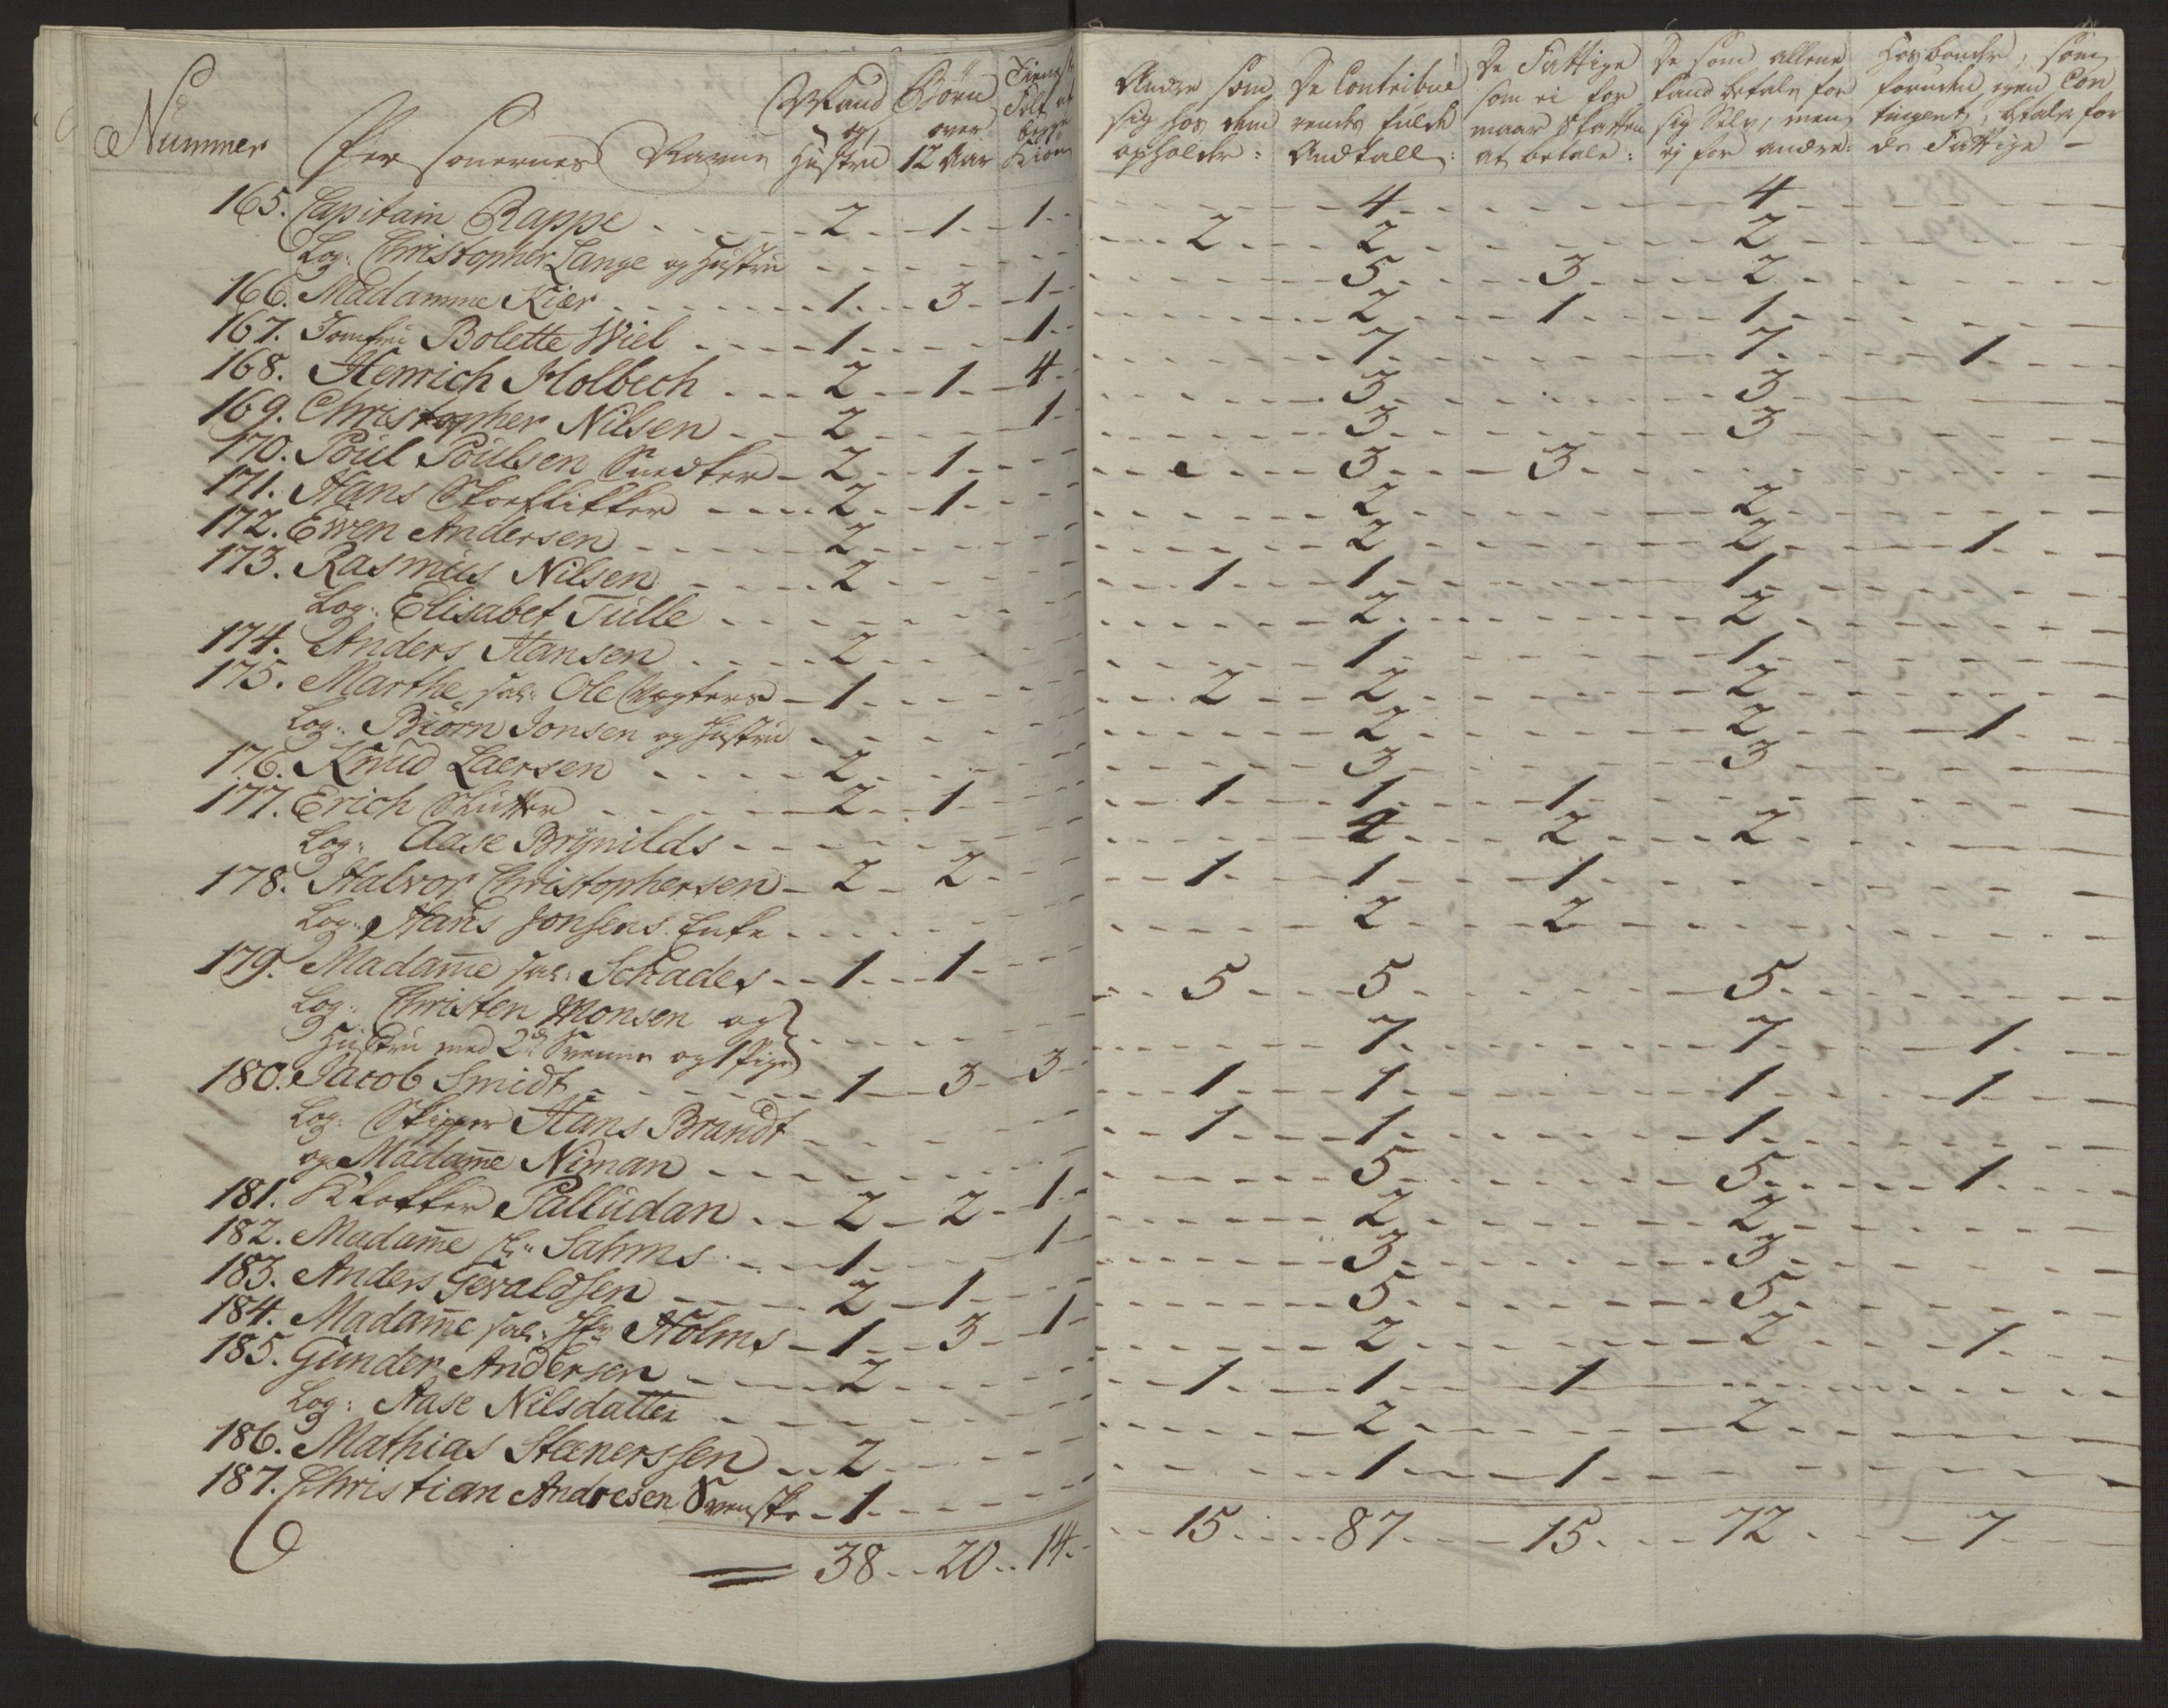 Nummer Personernes Navne Mand og Hustru Børn over 12 Aar Tieneste Folk af begge Kiøn Andre som sig hos dem opholder: De Contribuerendes fulde Andtall: De Fattige som ei formaar Skatten at betale: De som allene kand betale for sig Selv, men ej for andre: Hosbonder, som foruden egen Contingent, betaler for de Fattige –
165. Capitain Rappe 2 1 1 4 4
Log: Christopher Lange og Hustru 2 2 2
166. Madamme Kiær 1 3 1 5 3 2
167. Jomfru Bolette Wiel 1 1 2 1 1
168. Henrich Holbech 2 1 4 7 7 1
169. Christopher Nilsen 2 1 3 3
170. Poul Poulsen Snedker 2 1 3 3
171. Hans Skoeflikker 2 1 3 3
172. Ewen Andersen 2 2 2
173. Rasmus Nilsen 2 2 2 1
Log: Elisabet Tulle 1 1 1
174. Anders Hansen 2 2 2
175. Marthe sal: Ole Vegters 1 1 1
Log: Biørn Jonsen og Hustru 2 2 2
176. Knud Laersen 2 2 2 1
177. Erich Skutter 2 1 3 3
Log: Aase Brynilds 1 1 1
178. Halvor Christophersen 2 2 4 2 2
Log: Hans Jonsens Enke 1 1 1
179. Madame sal: Schades 1 1 2 2
Log: Christen Monsen og
Hustru med 2de Svenne og 1 Pige 5 5 5
180. Jacob Smidt 1 3 3 7 7 1
Log: Skipper Hans Brandt 1 1 1 1
og Madame Niman 1 1 1
181. Klokker Palludan 2 2 1 5 5 1
182. Madame Sahms 1 1 2 2
183. Anders Gevaldsen 2 1 3 3
184. Madame sal: Holms 1 3 1 5 5
185. Gunder Andersen 2 2 2 1
Log: Aase Nilsdatter 1 1 1
186. Mathias Stenerssen 2 2 2
187. Christian Andresen Svenske 1 1 1
38 20 14 15 87 15 72 7